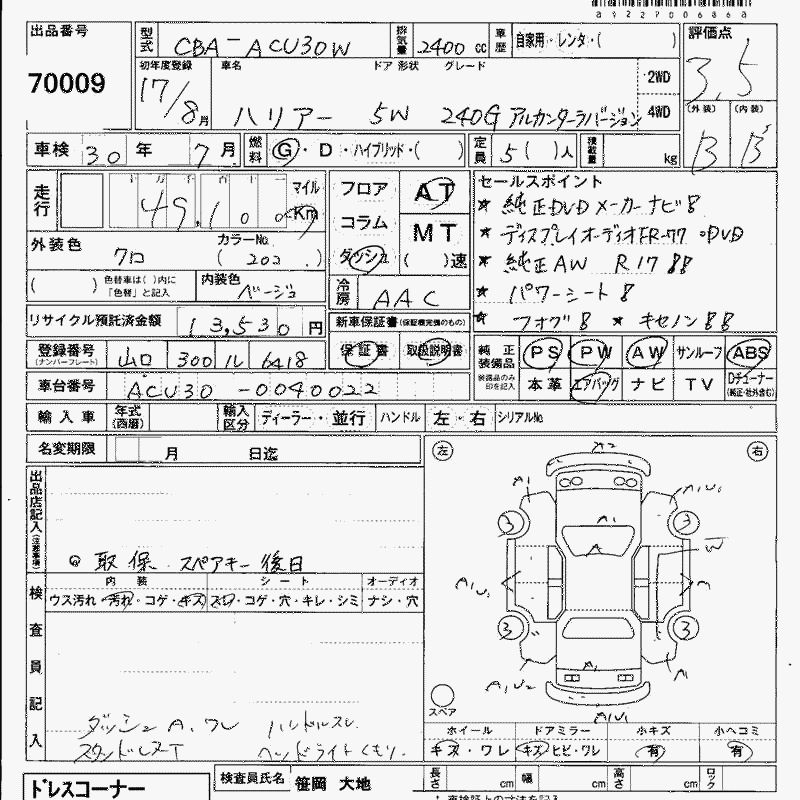 A1227006868
出品番号
70009
型式 CBA-ACU30W
排気量 2400 cc
車歴 自家用・レンタ・( )
評価点
3.5
初年度登録 車名 ドア 形状 グレード
17/8月 ハリアー 5W 240G アルカンターラバージョン
2WD
4WD
(外装) (内装)
B B
車検 30年 7月
燃料 G・D・ハイブリッド・( )
定員 5( )人
積載量 kg
走行 49,100 マイル Km
フロア
コラム
ダッシュ
AT
MT
( )速
外装色 クロ
カラーNo. ( 202 )
( ) 色替車は( )内に「色替」と記入
内装色 ベージュ
冷房 AAC
セールスポイント
★ 純正DVDメーカーナビ
★ ディスプレイオーディオ DVD
★ 純正AW R17
★ パワーシート
フォグ ★ キセノン
リサイクル預託済金額 13,530 円
新車保証書(保証継完備のもの)
保証書 取扱説明書
登録番号(ナンバープレート) 山口 300 ル 6418
車台番号 ACU30-0040022
純正装備品 PS PW AW サンルーフ ABS
装備品のみ印を記入 本革 エアバッグ ナビ TV Dチューナー(純正・社外含む)
輸入車 年式(西暦) 輸入区分 ディーラー・並行 ハンドル 左・右 シリアルNo.
名変期限 月 日迄
出品店記入(注意事項)
取保 スペアキー後日
検査員記入
内装 シート オーディオ
ウス汚れ・汚れ・コゲ・キズ スレ・コゲ・穴・キレ・シミ ナシ・穴
ダッシュA.ワレ ハンドルスレ
ヘッドライトくもり.
左 右
A2
A1
A1U1
A1
3
3
A
W
A1U1
3
3
A1
A1
A1U2
A1U1
スペア
ホイール ドアミラー 小キズ 小ヘコミ
キズ・ワレ キズ・ヒビ・ワレ 有 有
ドレスコーナー
検査員氏名 笹岡 大地
長さ cm 幅 cm 高さ cm ロック